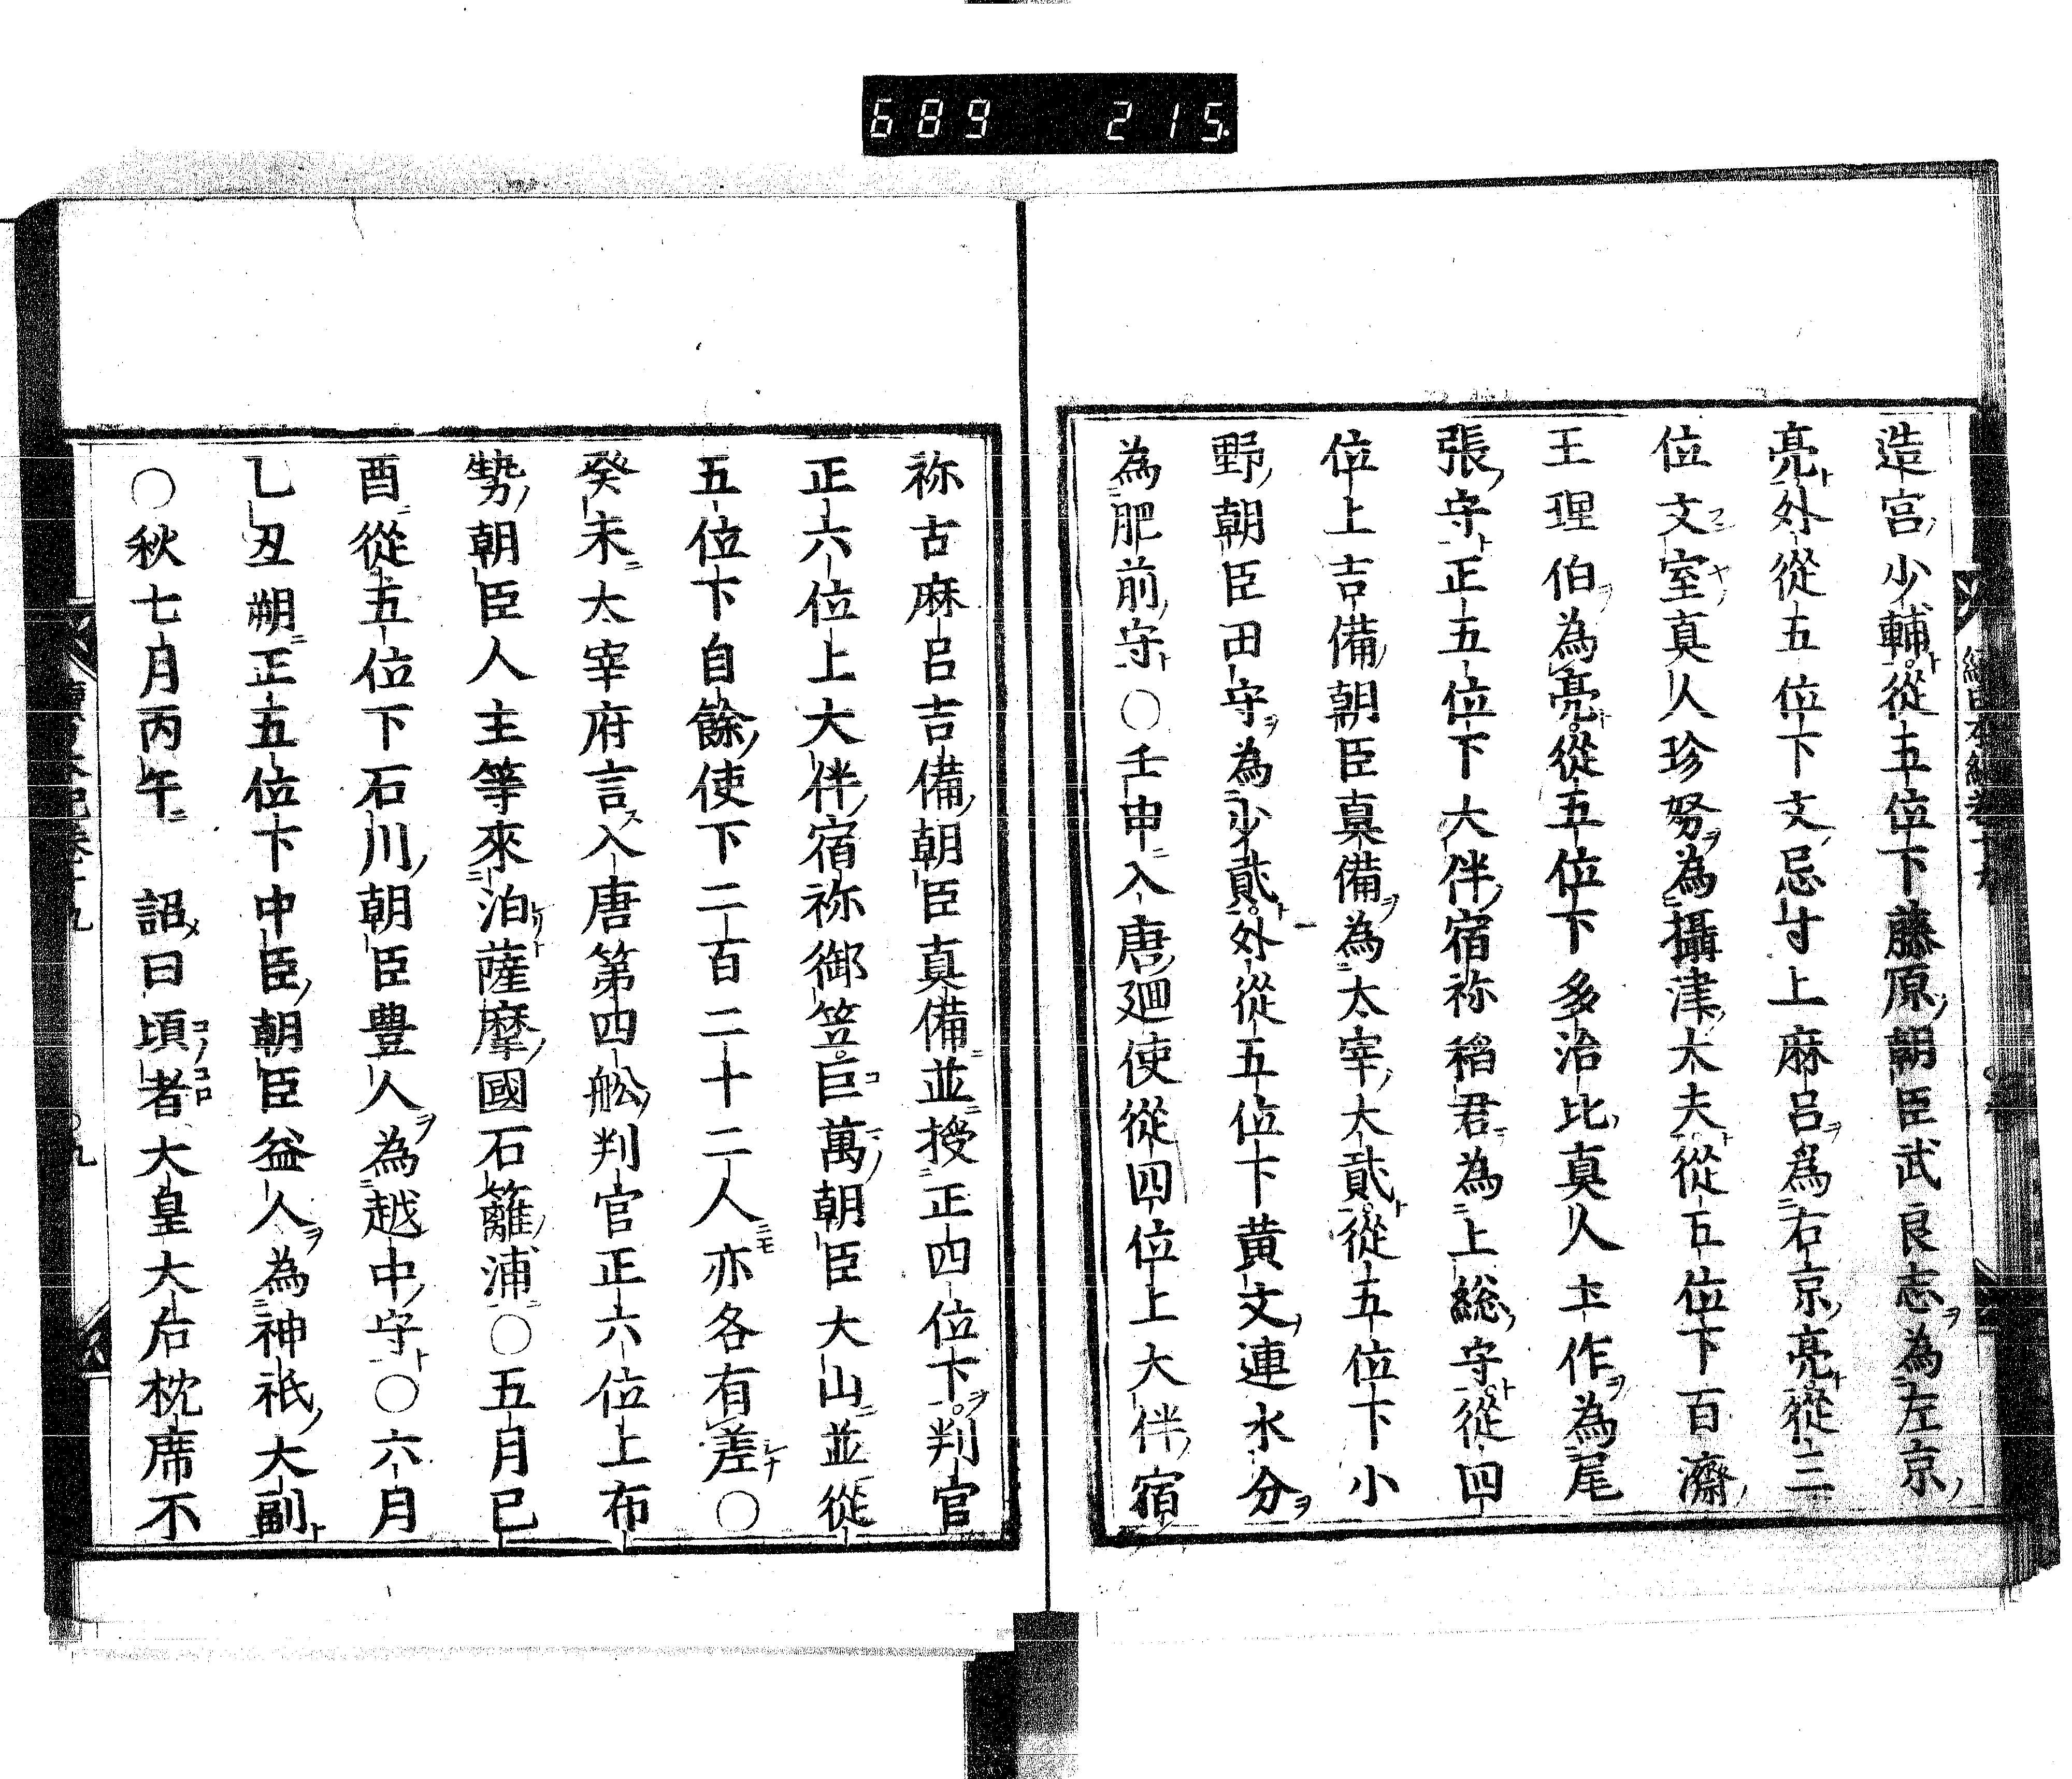 689 215
造宮少輔從五位下藤原朝臣武良志為左京
亮外從五位下文忌寸上麻呂為右京亮從三
位文室真人珍努為攝津大夫從五位下百濟
王理伯為亮從五位下多治比真人土作為尾
張守正五位下大伴宿祢稻君為上総守從四
位上吉備朝臣真備為太宰大貳從五位下小
野朝臣田守為少貳外從五位下黄文連水分
為肥前守〇壬申入唐廻使從四位上大伴宿
祢古麻呂吉備朝臣真備並授正四位下判官
正六位上大伴宿祢御笠巨萬朝臣大山並從
五位下自餘使下二百二十二人亦各有差〇
癸未太宰府言入唐第四舩判官正六位上布
勢朝臣人主等來泊薩摩國石籬浦〇五月已
酉從五位下石川朝臣豊人為越中守〇六月
乙丑朔正五位下中臣朝臣益人為神祇大副
〇秋七月丙午 詔曰頃者大皇大后枕席不